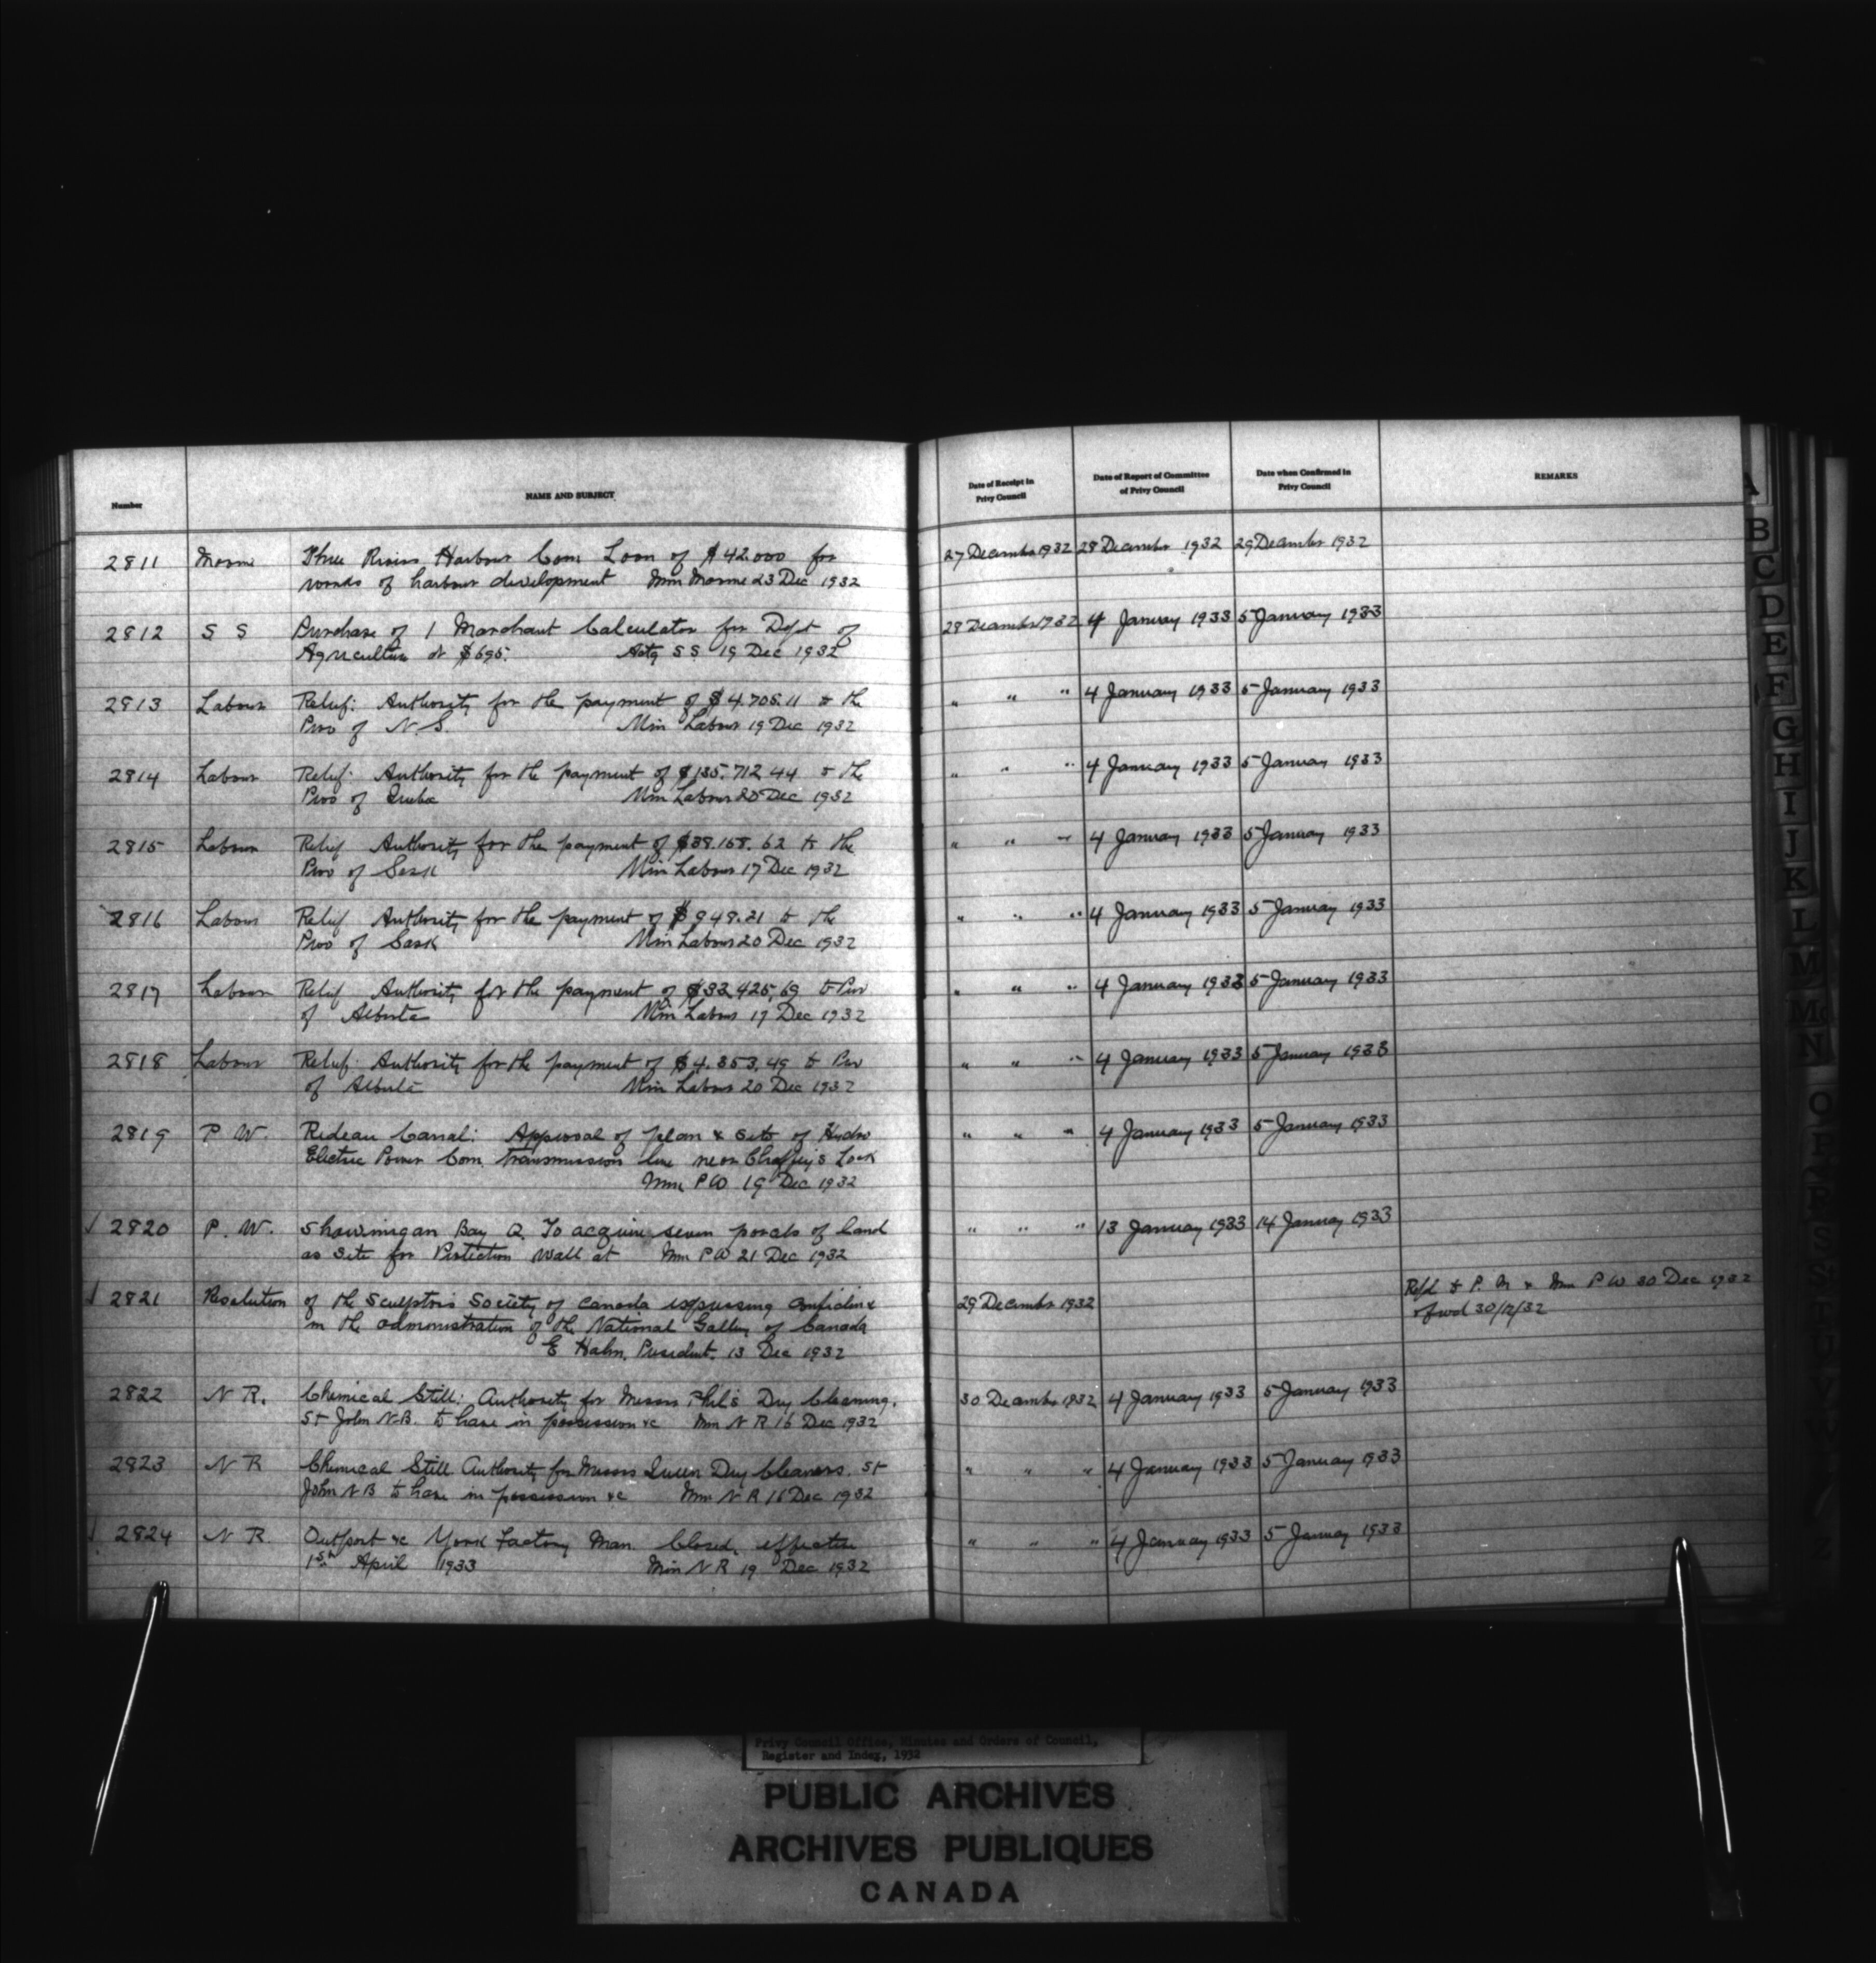 Number
NAME AND SUBJECT
Date of Receipt in Privy Council
Date of Report of Committee of Privy Council
Date when Confirmed in Privy Council
REMARKS
2811 Marine Three Rivers Harbour Com Loan of $42.000 for 27 December 1932 28 December 1932 29 December 1932
works of harbour development Min Marine 23 Dec 1932
2812 S S Purchase of 1 Marchant Calculator for Dept of 28 December 1932 4 January 1933 5 January 1933
Agriculture at $695. Actg S S 19 Dec 1932
2813 Labour Relief: Authority for the payment of $4.705.11 to the " " " 4 January 1933 5 January 1933
Prov of N. S. Min Labour 19 Dec 1932
2814 Labour Relief: Authority for the payment of $135.712 44 to the " " " 4 January 1933 5 January 1933
Prov of Min Labour 20 Dec 1932
2815 Labour Relief Authority for the payment of $38.158.62 to the " " " 4 January 1933 5 January 1933
Prov of Sask Min Labour 17 Dec 1932
2816 Labour Relief Authority for the payment of $949.21 to the " " " 4 January 1933 5 January 1933
Prov of Sask Min Labour 20 Dec 1932
2817 Labour Relief Authority for the payment of $33,425,69 to Prov " " " 4 January 1933 5 January 1933
of Alberta Min Labour 17 Dec 1932
2818 Labour Relief: Authority for the payment of $4.353,49 to Prov " " " 4 January 1933 5 January 1933
of Alberta Min Labour 20 Dec 1932
2819 P W. Rideau Canal: Approval of plan & site of Hydro " " " 4 January 1933 5 January 1933
Electric Power Com. transmission line near Chaffey's Lock
Min P W 19 Dec 1932
2820 P. W. Shawinigan Bay Q. To acquire seven parcels of land " " " 13 January 1933 14 January 1933
as site for Protection Wall at Min P W 21 Dec 1932
2821 Resolution of the Sculptors Society of Canada expressing confidence 29 December 1932 Refd to P. M & Min P W 30 Dec 1932
in the administration of the National Gallery of Canada 30/12/32
E Hahn, President. 13 Dec 1932
2822 N R. Chemical Still: Authority for Messrs Phil's Dry Cleaning, 30 December 1932 4 January 1933 5 January 1933
St John N.B. to have in possession &c Min N R 16 Dec 1932
2823 N R Chemical Still Authority for Messrs Queen Dry Cleaners. St " " " 4 January 1933 5 January 1933
John N B to have in possession &c Min N R 16 Dec 1932
2824 N R. Outport &c York Factory Man. Closed, effective " " " 4 January 1933 5 January 1933
1st April 1933 Min N R 19 Dec 1932
A
B
C
D
E
F
G
H
I
J
K
L
M
Mc
N
O
P
R
S
Privy Council Office, Minutes and Orders of Council,
Register and Index, 1932
PUBLIC ARCHIVES
ARCHIVES PUBLIQUES
CANADA